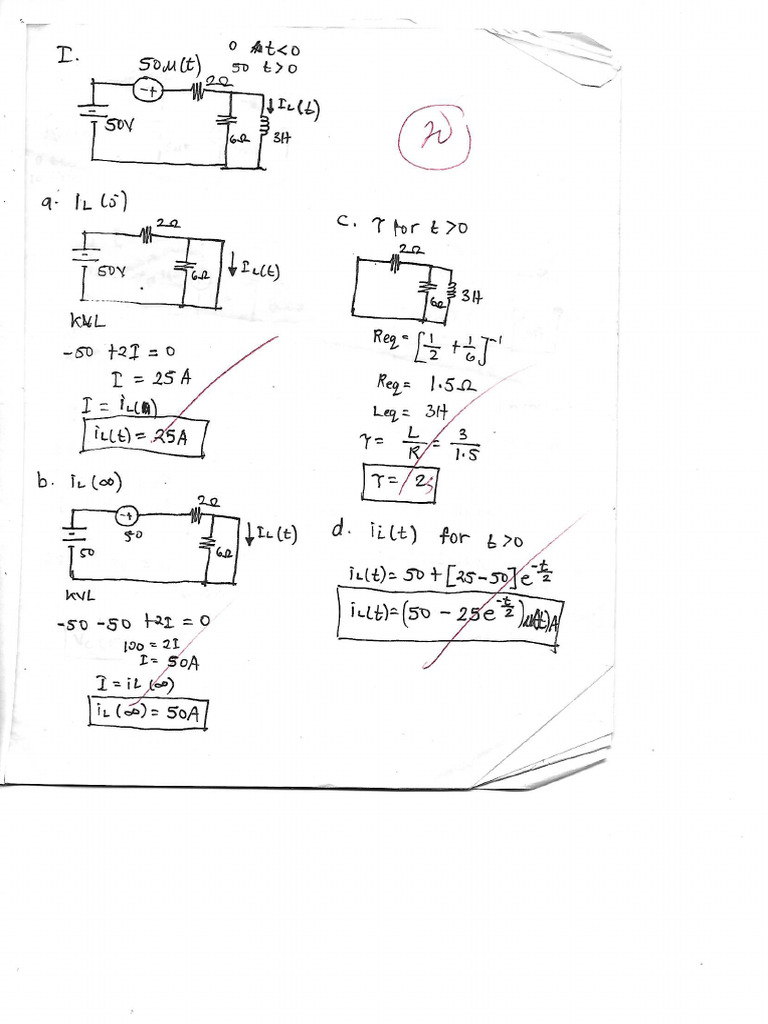 I.
0 t<0
50μ(t)
50 t>0
-+
2Ω
↓ IL(t)
50V
6Ω
3H
20
a. iL(0⁻)
2Ω
50V
6Ω
↓ IL(t)
KVL
-50 +2I = 0
I = 25A
I = iL(
iL(t) = 25A
b. iL(∞)
-+
50
2Ω
50
6Ω
↓ IL(t)
KVL
-50 -50 +2I = 0
100 = 2I
I = 50A
I = iL(∞)
iL(∞) = 50A
c. τ for t>0
2Ω
6Ω
3H
Req = [1/2 + 1/6]⁻¹
Req = 1.5Ω
Leq = 3H
τ = L/R = 3/1.5
τ = 2s
d. iL(t) for t>0
iL(t) = 50 + [25-50]e^-t/2
iL(t) = (50 - 25e^-t/2)μ(t)A